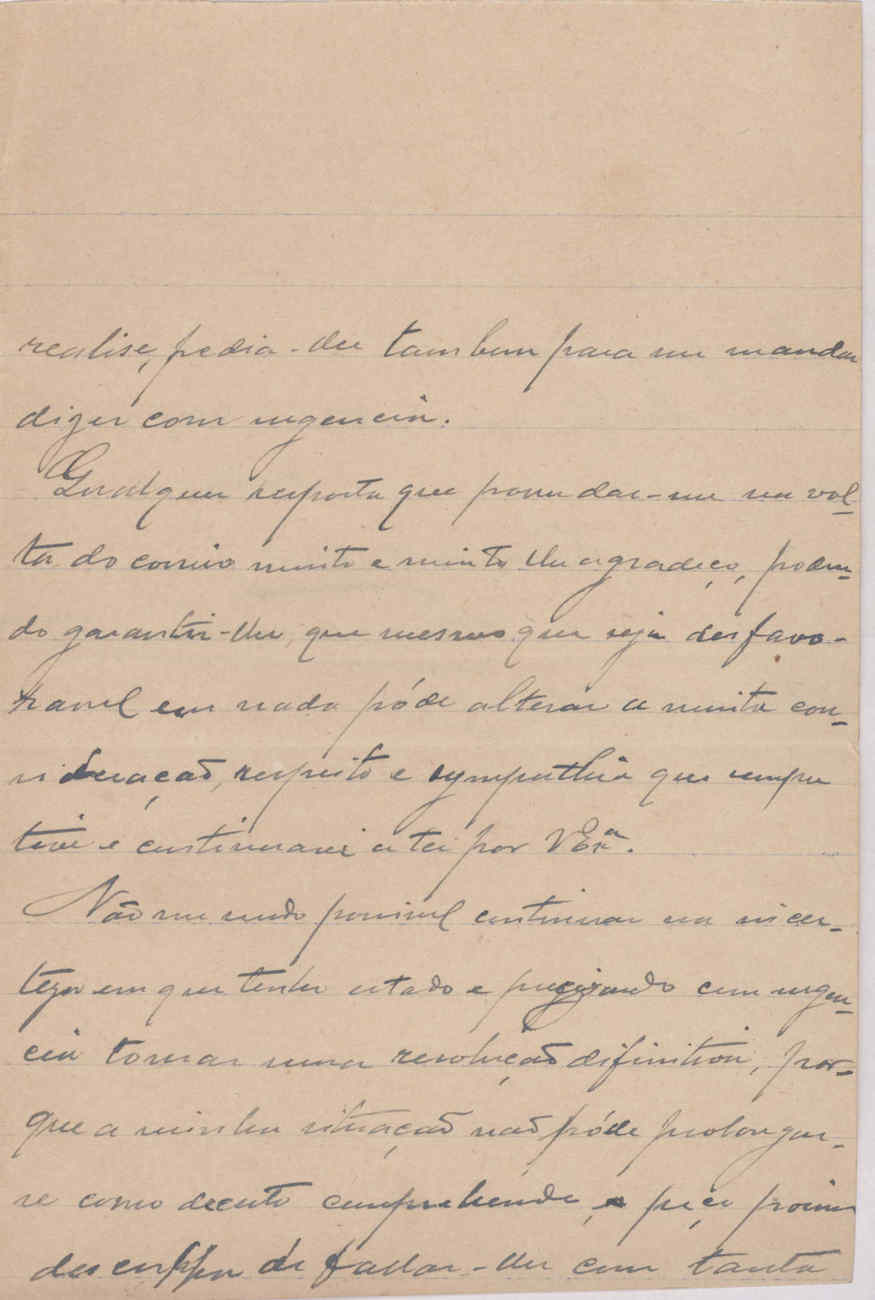 realise, pedia-lhe tambem para me mandar
dizer com urgencia.
Qualquer resposta que possa dar-me na vol-
ta do correio muito e muito lhe agradeço, poden-
do garantir-lhe, que mesmo que seja desfavo-
ravel em nada póde alterar a muita con-
sideração, respeito e sympathia que sempre
tive e continuarei a ter por VExª.
Não me sendo possivel continuar na incer-
teza em que tenho estado e precizando com urgen-
cia tomar uma resolução difinitiva, por-
que a minha situação não póde prolongar-
se como decerto comprehende, e peço
desculpa de fallar-lhe com tanta